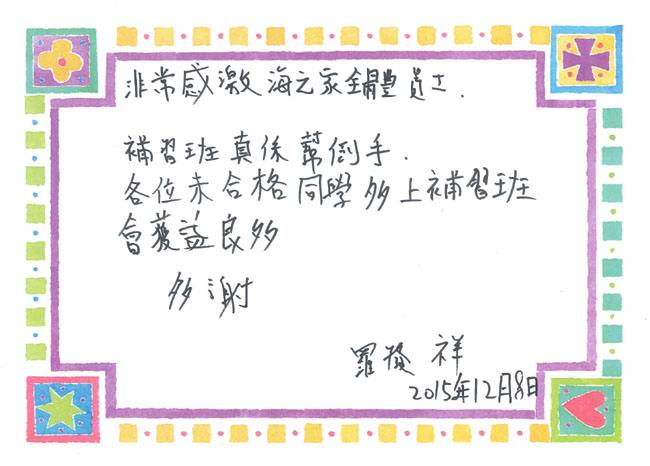 非常感激海之家全體員士.
補習班真係幫倒手.
各位未合格同學多上補習班
會獲益良多
多謝
羅 祥
2015年12月8日